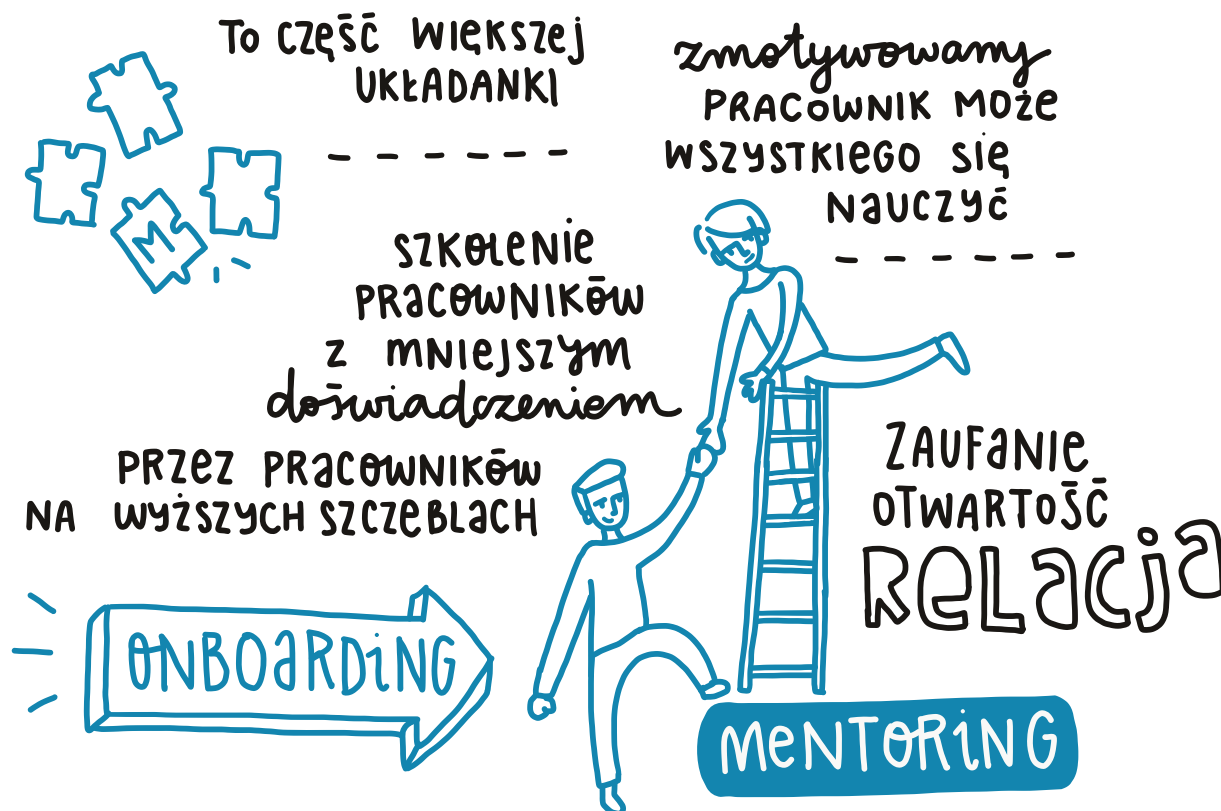 To CZĘŚĆ WIĘKSZEJ
UKŁADANKI
M
zmotywowany
PRACOWNIK MOŻE
WSZYSTKIEGO SIĘ
NAUCZYĆ
SZKOLENIE
PRACOWNIKÓW
Z MNIEJSZYM
doświadczeniem
PRZEZ PRACOWNIKÓW
NA WYŻSZYCH SZCZEBLACH
ZAUFANIE
OTWARTOŚĆ
RELACJA
ONBOARDING
MENTORING